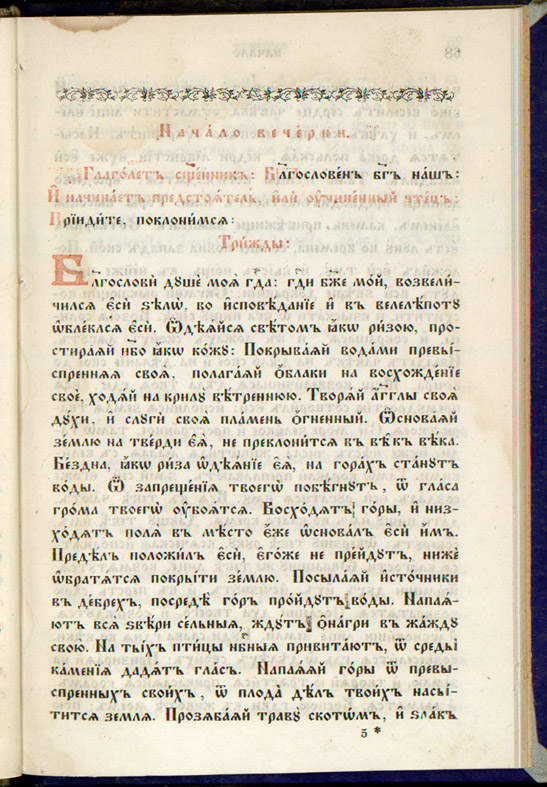 Нача́ло вече́рни.
Глаго́летъ сщ҃е́нникъ: Бл҃гослове́нъ бг҃ъ на́шъ:
И҆ начина́етъ предстоѧ́тель, и҆лѝ оу҆чине́нный чте́цъ:
Прїиди́те, поклони́мсѧ:
Три́жды:
Бл҃гословѝ дꙋшѐ моѧ̀ гдⷭ҇а: гдⷭ҇и бж҃е мо́й, возвели́-
чилсѧ є҆сѝ ѕѣлѡ̀, во и҆сповѣ́данїе и҆ въ велелѣ́потꙋ
ѡ҆бле́клсѧ є҆сѝ. Ѡ҆дѣѧ́йсѧ свѣ́томъ ꙗ҆́кѡ ри́зою, про-
стира́ѧй не́бо ꙗ҆́кѡ ко́жꙋ: Покрыва́ѧй вода́ми превы́-
спреннѧѧ своѧ̑, полага́ѧй ѻ҆́блаки на восхожде́нїе
своѐ, ходѧ́й на крилꙋ̀ вѣ́треннюю. Творѧ́й а҆́гг҃лы своѧ̑
дꙋ́хи, и҆ слꙋги̑ своѧ̑ пла́мень ѻ҆́гненный. Ѡ҆снова́ѧй
зе́млю на тве́рди є҆ѧ̀, не преклони́тсѧ въ вѣ́къ вѣ́ка.
Бе́здна, ꙗ҆́кѡ ри́за ѡ҆дѣѧ́нїе є҆ѧ̀, на гора́хъ ста́нꙋтъ
во́ды. Ѿ запреще́нїѧ твоегѡ̀ побѣ́гнꙋтъ, ѿ гла́са
гро́ма твоегѡ̀ оу҆боѧ́тсѧ. Восхо́дѧтъ го́ры, и҆ низ-
хо́дѧтъ полѧ̀ въ мѣ́сто є҆́же ѡ҆снова́лъ є҆сѝ и҆̀мъ.
Предѣ́лъ положи́лъ є҆сѝ, є҆гѡ́же не пре́йдꙋтъ, нижѐ
ѡ҆братѧ́тсѧ покры́ти зе́млю. Посыла́ѧй и҆сто́чники
въ де́брехъ, посредѣ̀ го́ръ про́йдꙋтъ во́ды. Напаѧ́-
ютъ всѧ̑ ѕвѣ́ри се́льныѧ, ждꙋ́тъ ѻ҆на́гри въ жа́ждꙋ
свою̀. На ты́хъ пти̑цы нб҃ныѧ привита́ютъ, ѿ среды̀
ка́менїѧ дадѧ́тъ гла́съ. Напаѧ́ѧй го́ры ѿ превы́-
спреннихъ свои́хъ, ѿ плода̀ дѣ́лъ твои́хъ насы́-
титсѧ землѧ̀. Прозѧба́ѧй травꙋ̀ скотѡ́мъ, и҆ ѕла́къ
5 *